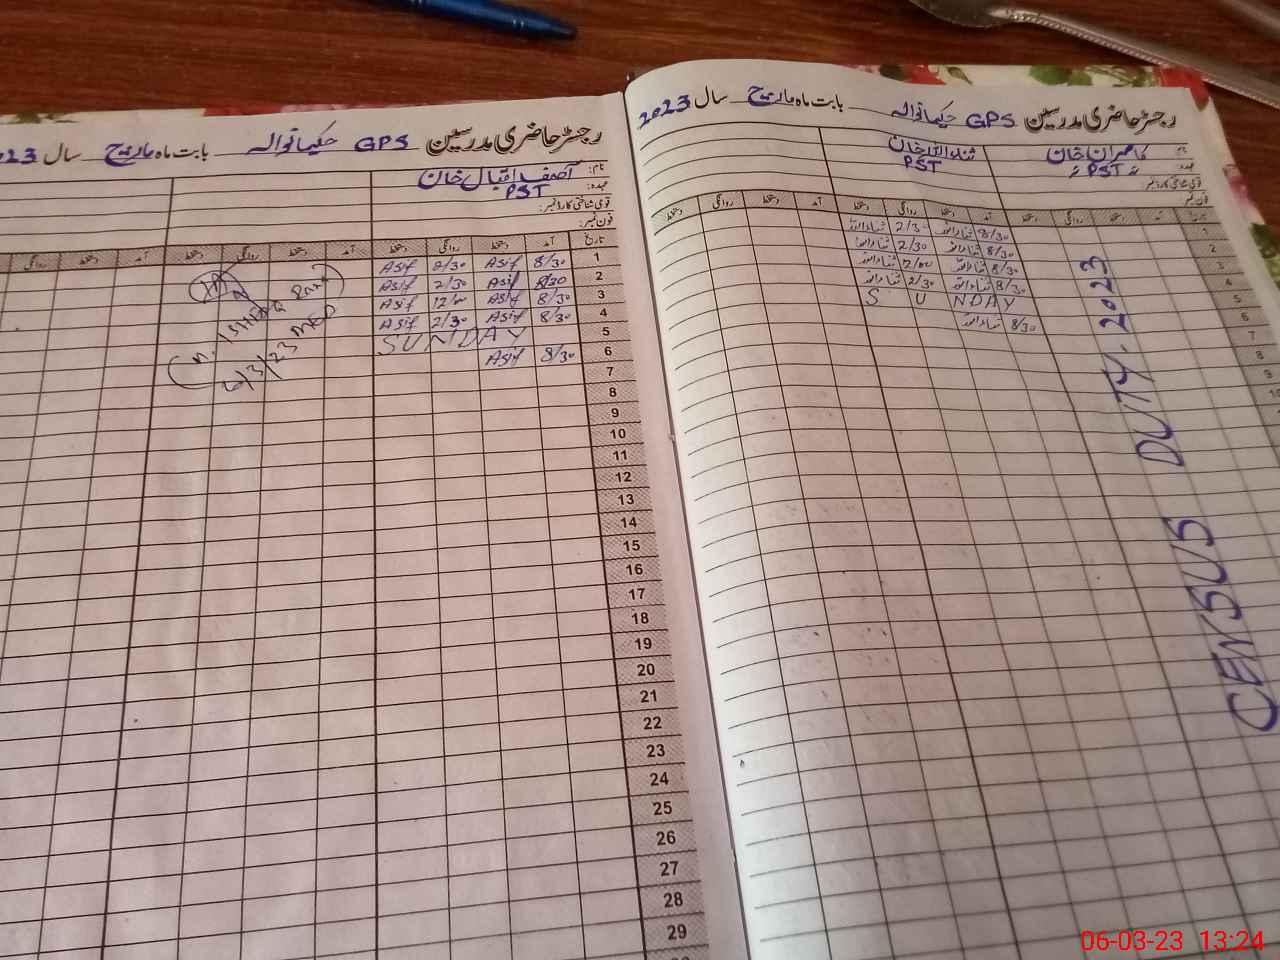 رجسٹر حاضری مدرسین GPS حکیمانوالہ بابت ماہ مارچ سال 2023
نام: کامران خان
ثناء اللہ خان
عہدہ: PST
PST
قومی شناختی کارڈ نمبر:
فون نمبر:
تاریخ آمد دستخط روانگی دستخط آمد دستخط روانگی دستخط آمد دستخط روانگی دستخط
1 8/30 ثناء اللہ 2/30 ثناء اللہ
2 8/30 ثناء اللہ 2/30 ثناء اللہ
3 8/30 ثناء اللہ 12/00 ثناء اللہ
4 8/30 ثناء اللہ 2/30 ثناء اللہ
5 SUNDAY
6 8/30 ثناء اللہ
7
8
9
CENSUS DUTY. 2023
رجسٹر حاضری مدرسین GPS حکیمانوالہ بابت ماہ مارچ سال 2023
نام: آصف اقبال خان
عہدہ: PST
قومی شناختی کارڈ نمبر:
فون نمبر:
تاریخ آمد دستخط روانگی دستخط آمد دستخط روانگی دستخط آمد دستخط روانگی
1 8/30 Asif 2/30 Asif
2 8/30 Asif 2/30 Asif
3 8/30 Asif 12/00 Asif
4 8/30 Asif 2/30 Asif
5 SUNDAY
6 8/30 Asif
7
8
9
10
11
12
13
14
15
16
17
18
19
20
21
22
23
24
25
26
27
28
29
(M. ISHFAQ
6/3/23
06-03-23 13:24